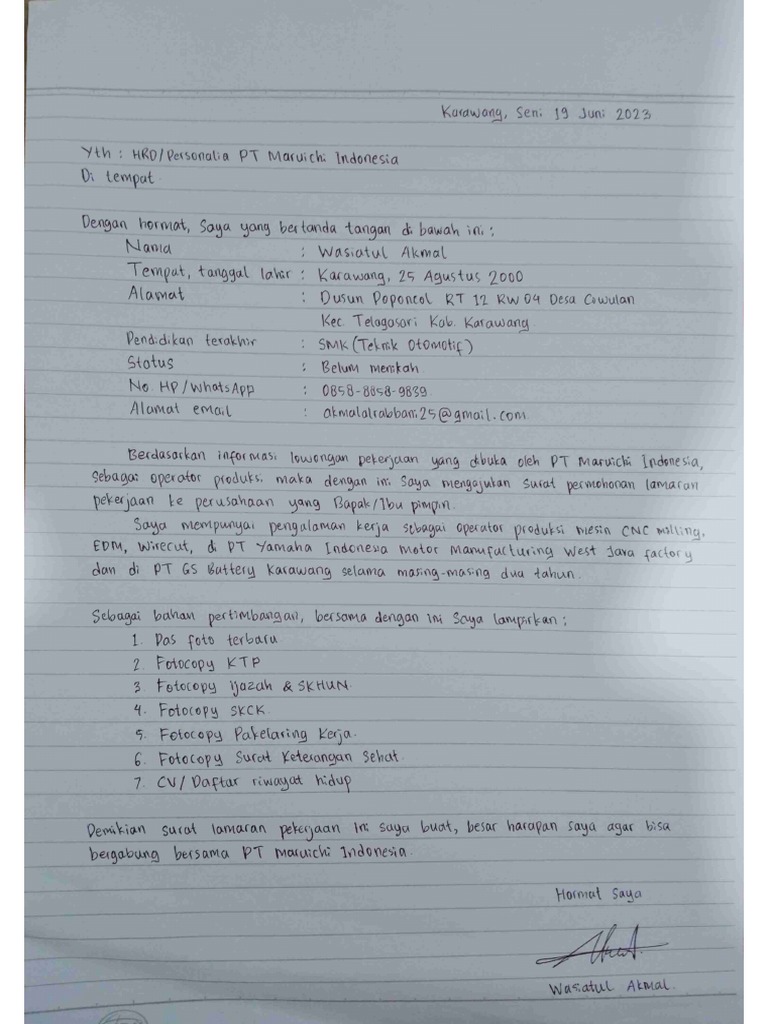 Karawang, Seni 19 Juni 2023
Yth : HRD/Personalia PT Maruichi Indonesia
Di tempat.
Dengan hormat, Saya yang bertanda tangan di bawah ini :
Nama : Wasiatul Akmal
Tempat, tanggal lahir : Karawang, 25 Agustus 2000
Alamat : Dusun Poponcol RT 12 RW 04 Desa Ciwulan
Kec. Telagasari Kab. Karawang
Pendidikan terakhir : SMK (Teknik Otomotif)
Status : Belum menikah
No. HP/WhatsApp : 0858-8858-9839
Alamat email : akmalalrabbani25@gmail.com
Berdasarkan informasi lowongan pekerjaan yang dibuka oleh PT Maruichi Indonesia,
Sebagai operator produksi maka dengan ini Saya mengajukan surat permohonan lamaran
pekerjaan ke perusahaan yang Bapak/Ibu pimpin.
Saya mempunyai pengalaman kerja sebagai operator produksi mesin CNC milling,
EDM, Wirecut, di PT Yamaha Indonesia Motor Manufacturing West Java factory
dan di PT GS Battery Karawang selama masing-masing dua tahun.
Sebagai bahan pertimbangan, bersama dengan ini Saya lampirkan :
1. Pas foto terbaru
2. Fotocopy KTP
3. Fotocopy ijazah & SKHUN.
4. Fotocopy SKCK.
5. Fotocopy Pakelaring Kerja.
6. Fotocopy Surat Keterangan Sehat.
7. CV/Daftar riwayat hidup
Demikian surat lamaran pekerjaan ini saya buat, besar harapan saya agar bisa
bergabung bersama PT Maruichi Indonesia.
Hormat Saya
Wasiatul Akmal.